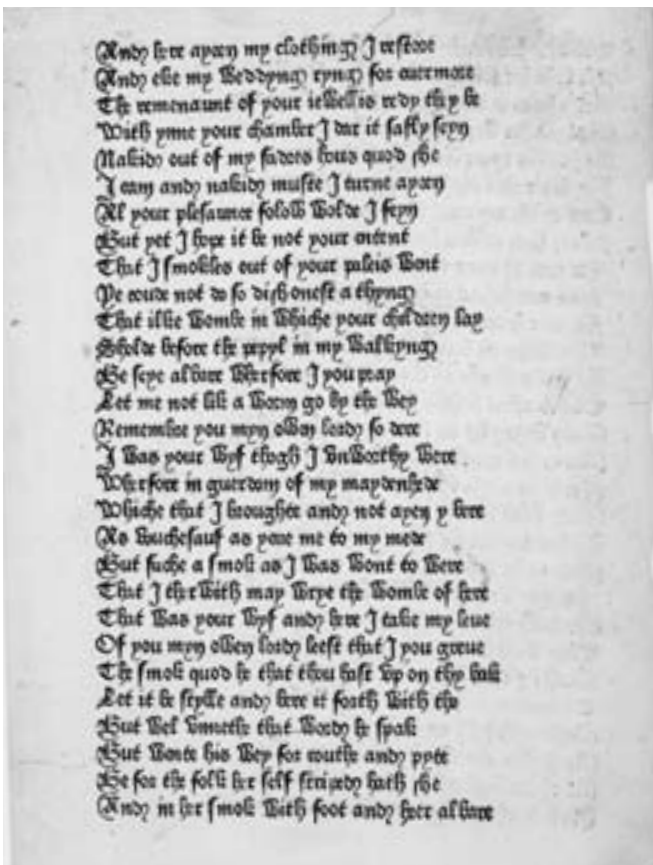 And here ayeen my clothing I restore
And eke my weddyng ryng for euermore
The remenaunt of your iewellis redy they be
With ynne your chamber I dar it safly seyn
Nakid out of my fadres hous quod she
I cam and nakid muste I turne ayeen
Al your plesaunce folow wolde I feyn
But yet I hope it be not your entent
That I smokles out of your paleis went
Ye coude not do so dishoneste a thyng
That ilke wombe in whiche your children lay
Sholde before the pepyl in my walkyng
Be seye al bare wherfore I you pray
Let me not lik a worm go by the wey
Remembre you myn owen lord so dere
I was your wyf thogh I vnworthy were
Wherfore in guerdom of my maydenhede
Whiche that I broughte and not ayen y bere
As vouchesauf as yeue me to my mede
But suche a smok as I was wont to were
That I therwith may wrye the wombe of here
That was your wyf and here I take my leue
Of you myn owen lord leest that I you greue
The smok quod he that thou hast vp on thy bak
Let it be stylle and bere it forth with the
But wel vnnethe that word he spak
But wente his wey for routhe and pyte
Be for the folk her self striped hath she
And in her smok with foot and heer al bare